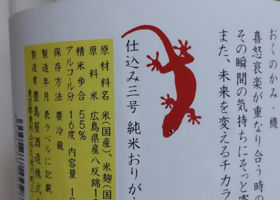 おくのかみ 機
喜怒哀楽が重なり合う時の
その瞬間の気持ちにそっと寄
また、未来を変えるチカラ
仕込み三号 純米おりが
原材料名 米(国産)、米麹(国
原料米 広島県産八反錦1
精米歩合 55%
アルコール分 16度、内容量 1
保存方法 要冷蔵
製造年月 表ラベルに表示
製造者 豊島屋酒造株式